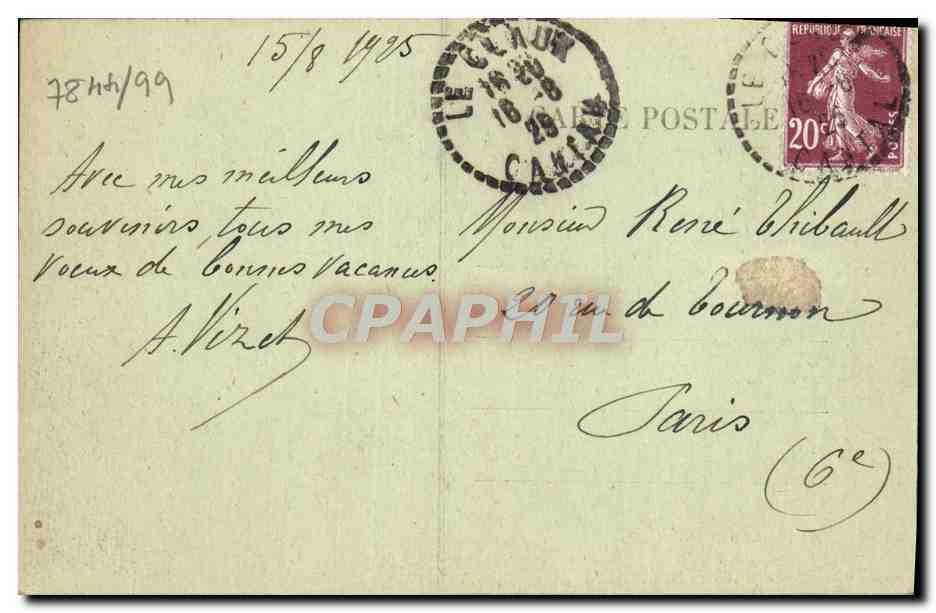 15/8 1925
7844/99
LE CLAUX
16 20
16 -8
25
CANTAL
CARTE POSTALE
REPUBLIQUE FRANCAISE
20c
POSTES
LE C
CANTAL
Avec mes meilleurs
souvenirs, tous mes
voeux de bonnes vacances.
A. Vizet
Monsieur René Thibault
20 rue de Tournon
Paris
(6e)
CPAPHIL